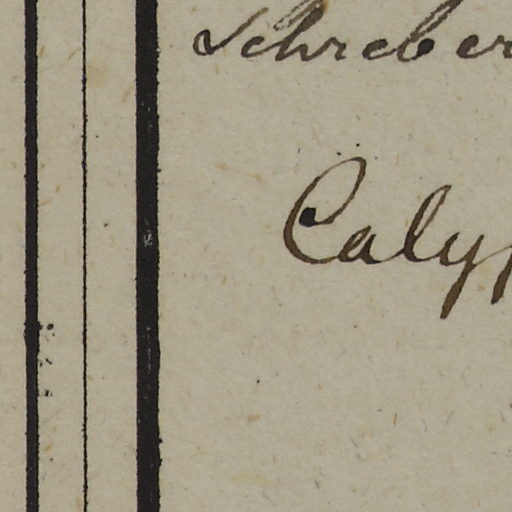 Schreber
Calyp